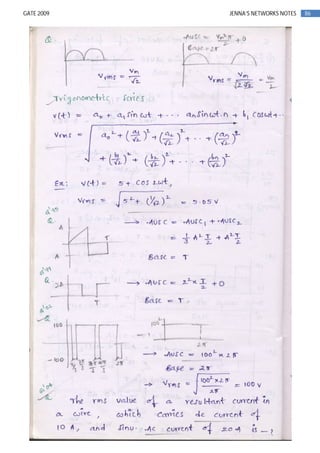 GATE 2009 JENNA'S NETWORKS NOTES 86
Q. AUSC = Vm² π / 2 + 0
Base = 2π
Vrms = Vm / √2
Vrms = Vm / √2 √2 = Vm / 2
Trigonometric series
v(t) = a₀ + a₁ sin ωt + ··· an sin ωt.n + b₁ cos ωt + ··
Vrms = √ a₀² + (a₁/√2)² + (a₂/√2)² + ·· + (an/√2)²
+ (b₁/√2)² + (b₂/√2)² + ··· + (bn/√2)²
Ex: v(t) = 5 + cos ωt,
Vrms = √ 5² + (1/√2)² = 5.05 V
Q. A T → AUSC = AUSC₁ + AUSC₂
= 1/3 A² T/2 + A² T/2
A Base = T
Q. 2 → AUSC = 2² × T/2 + 0
T Base = T
Q. 100 100²
2π
-100 → AUSC = 100² × 2π
Base = 2π
→ Vrms = √ 100² × 2π / 2π = 100 V
Q. The rms value of a resultant current in
a wire, which carries dc current of
10 A, and sinu. Ac current of 20 A is — ?